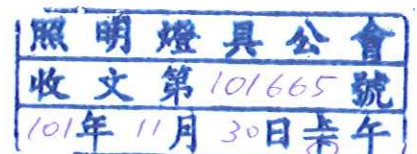 照明燈具公會
收文第101665號
101年11月30日上午